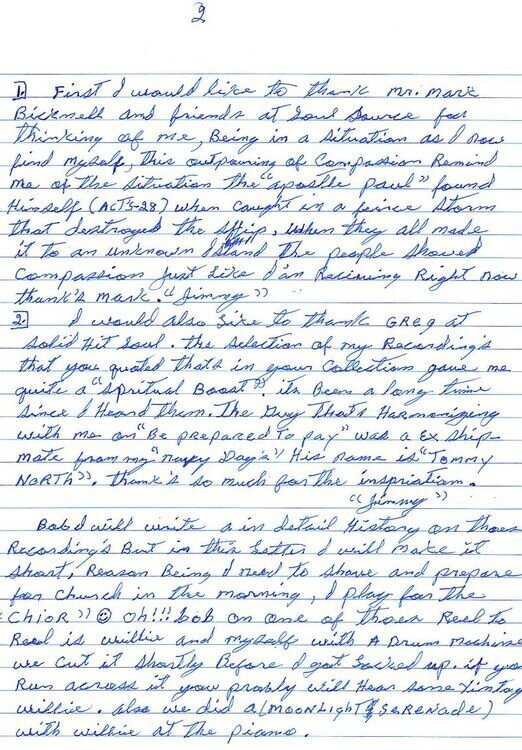 2
1. First I would like to thank Mr. Mark
Bicknell and friends at Soul Source for
thinking of me, Being in a situation as I now
find myself, this outpouring of Compassion Remind
me of the situation the "apostle paul" found
Himself (ACTS-28) when caught in a feirce storm
that destroyed the ship, when they all made
it to an unknown Island the people showed
Compassion Just Like I'm Recieving Right now
thank's Mark. "Jimmy"
2. I would also Like to thank GREG at
Solid Hit Soul. the selection of my Recording's
that you quoted thats in your Collection gave me
quite a "Spritual Boost". its Been a long time
since I Heard them. The Guy that's Harmonizing
with me on "Be prepared To pay" was a Ex Ship-
mate from my "Navy Day's" His name is "Tommy
NORTH". thank's so much for the inspriation.
"Jimmy"
Bob I will write a in detail History on thoes
Recording's But in this Letter I will make it
short, Reason Being I need to shave and prepare
for Church in the morning, I play for the
"CHIOR" ☺ Oh!!! bob on one of thoes Reel to
Reel is willie and myself with A Drum Machine
we cut it shortly Before I got Locked up. if you
Run across it you probly will Hear some Vintag
willie. also we did a (MOONLIGHT SERENADE)
with willie at the piano.